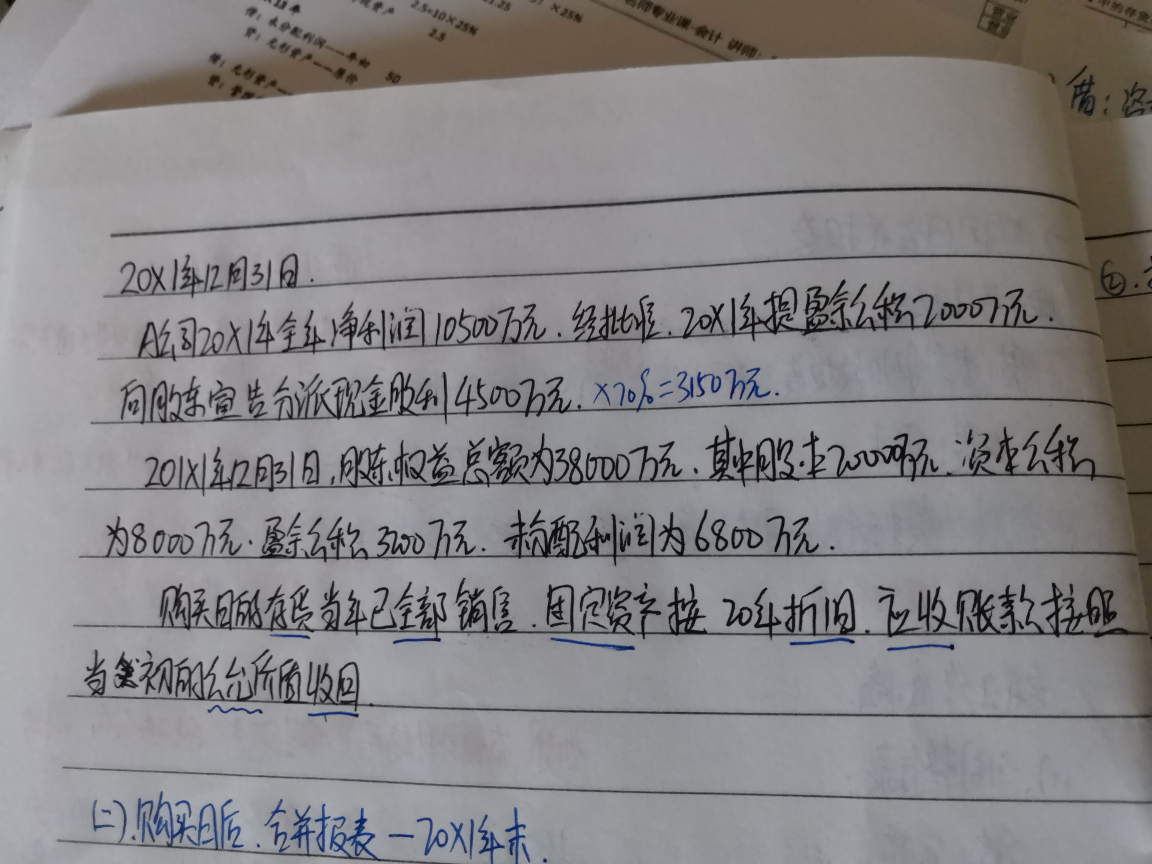 ×13年
2.5=10×25%
×25%
名师专业课-会计 讲师:
2.5
贷:无形资产——原价 50
借:无形资产——
借:
20X1年12月31日.
A公司20X1年全年净利润10500万元.经批准.20X1年提盈余公积2000万元.
向股东宣告分派现金股利4500万元. ×70%=3150万元.
201X1年12月31日,股东权益总额为38000万元.其中股本20000万元.资本公积
为8000万元.盈余公积3200万元.未分配利润为6800万元.
购买日的存货当年已全部销售.固定资产按20年折旧.应收账款按照
当初的公允价值收回.
(二).购买日后.合并报表—20X1年末.
②.